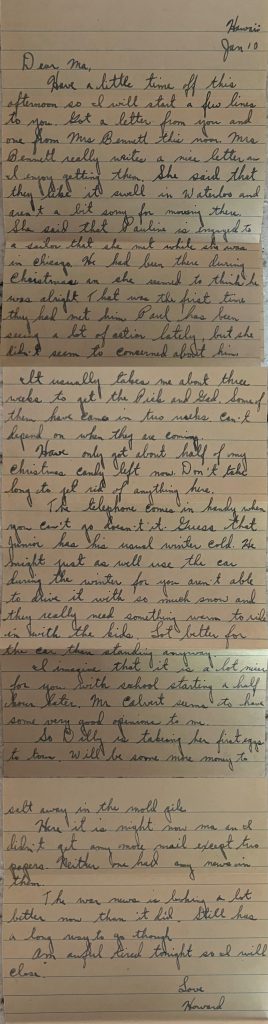 Hawaii
Jan 10
Dear Ma,
Have a little time off this
afternoon so I will start a few lines
to you. Got a letter from you and
one from Mrs Bennett this noon. Mrs
Bennett really writes a nice letter an
I enjoy getting them. She said that
they like it swell in Waterloo and
aren't a bit sorry for moving there.
She said that Pauline is engaged to
a sailor that she met while she was
in Chicago. He had been there during
Christmas an she seemed to think he
was alright. That was the first time
they had met him. Paul has been
seeing a lot of action lately, but she
didn't seem to concerned about him.
It usually takes me about three
weeks to get the Pick and Gad. Some of
them have came in two weeks. Can't
depend on when they are coming.
Have only got about half of my
Christmas candy left now. Don't take
long to get rid of anything here.
The telephone comes in handy when
you can't go doesn't it. Guess that
Junior has his usual winter cold. He
might just as well use the car
during the winter for you aren't able
to drive it with so much snow and
they really need something warm to ride
in with the kids. Lot better for
the car than standing anyway.
I imagine that it is a lot nicer
for you with school starting a half
hour later. Mr Calvert seems to have
some very good opinions to me.
So is taking her first eggs
to town. Will be some more money to
salt away in the mold pile.
Here it is night now ma an I
didn't get any more mail except two
papers. Neither one had any news in
them.
The war news is looking a lot
better now than it did. Still has
a long way to go though.
Am awful tired tonight so I will
close.
Love
Howard